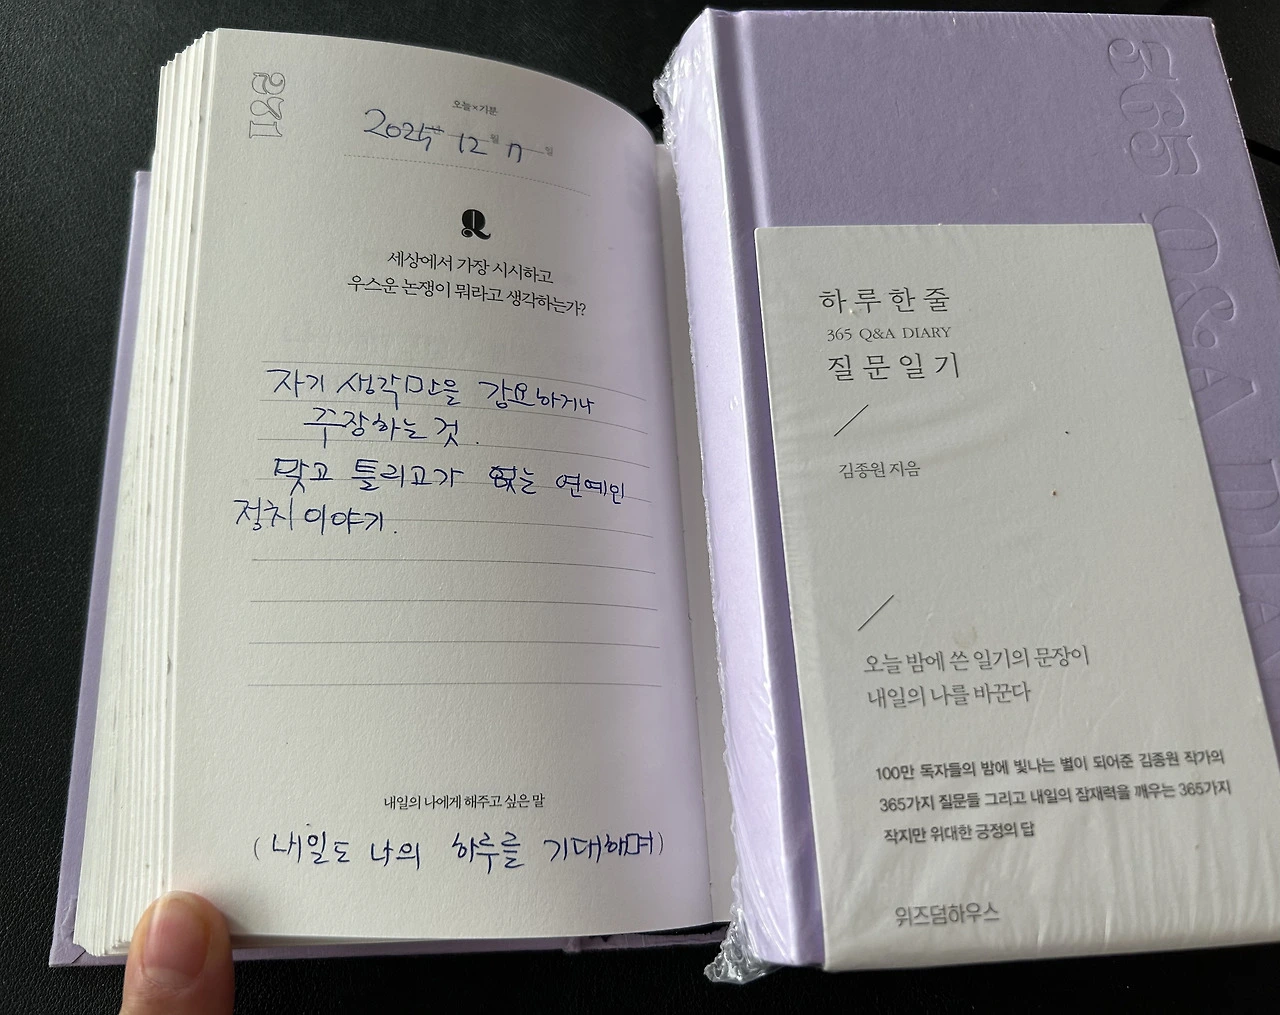 231
오늘×기분
2025년 12월 17일
Q
세상에서 가장 시시하고
우스운 논쟁이 뭐라고 생각하는가?
자기 생각만을 강요하거나
주장하는 것.
맞고 틀리고가 없는 연예인
정치 이야기.
내일의 나에게 해주고 싶은 말
(내일도 나의 하루를 기대하며)
365 Q&A DIA
하루한줄
365 Q&A DIARY
질문일기
김종원 지음
오늘 밤에 쓴 일기의 문장이
내일의 나를 바꾼다
100만 독자들의 밤에 빛나는 별이 되어준 김종원 작가의
365가지 질문들 그리고 내일의 잠재력을 깨우는 365가지
작지만 위대한 긍정의 답
위즈덤하우스